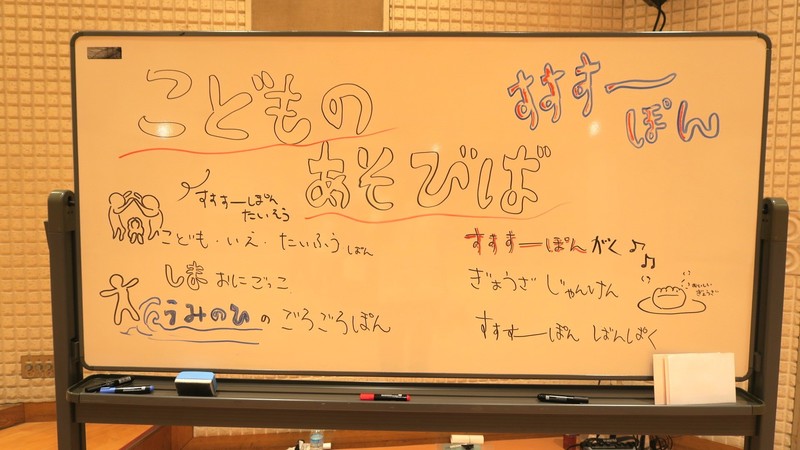 こどもの
あそびば
すすすーぽん
すすすーぽん
たいそう
こども・いえ・たいふう ばん
しま おにごっこ
うみのひの ごろごろぽん
すすすーぽん がく
ぎょうざ じゃんけん
おいしい
ぎょうざ
すすすーぽん ばんぱく